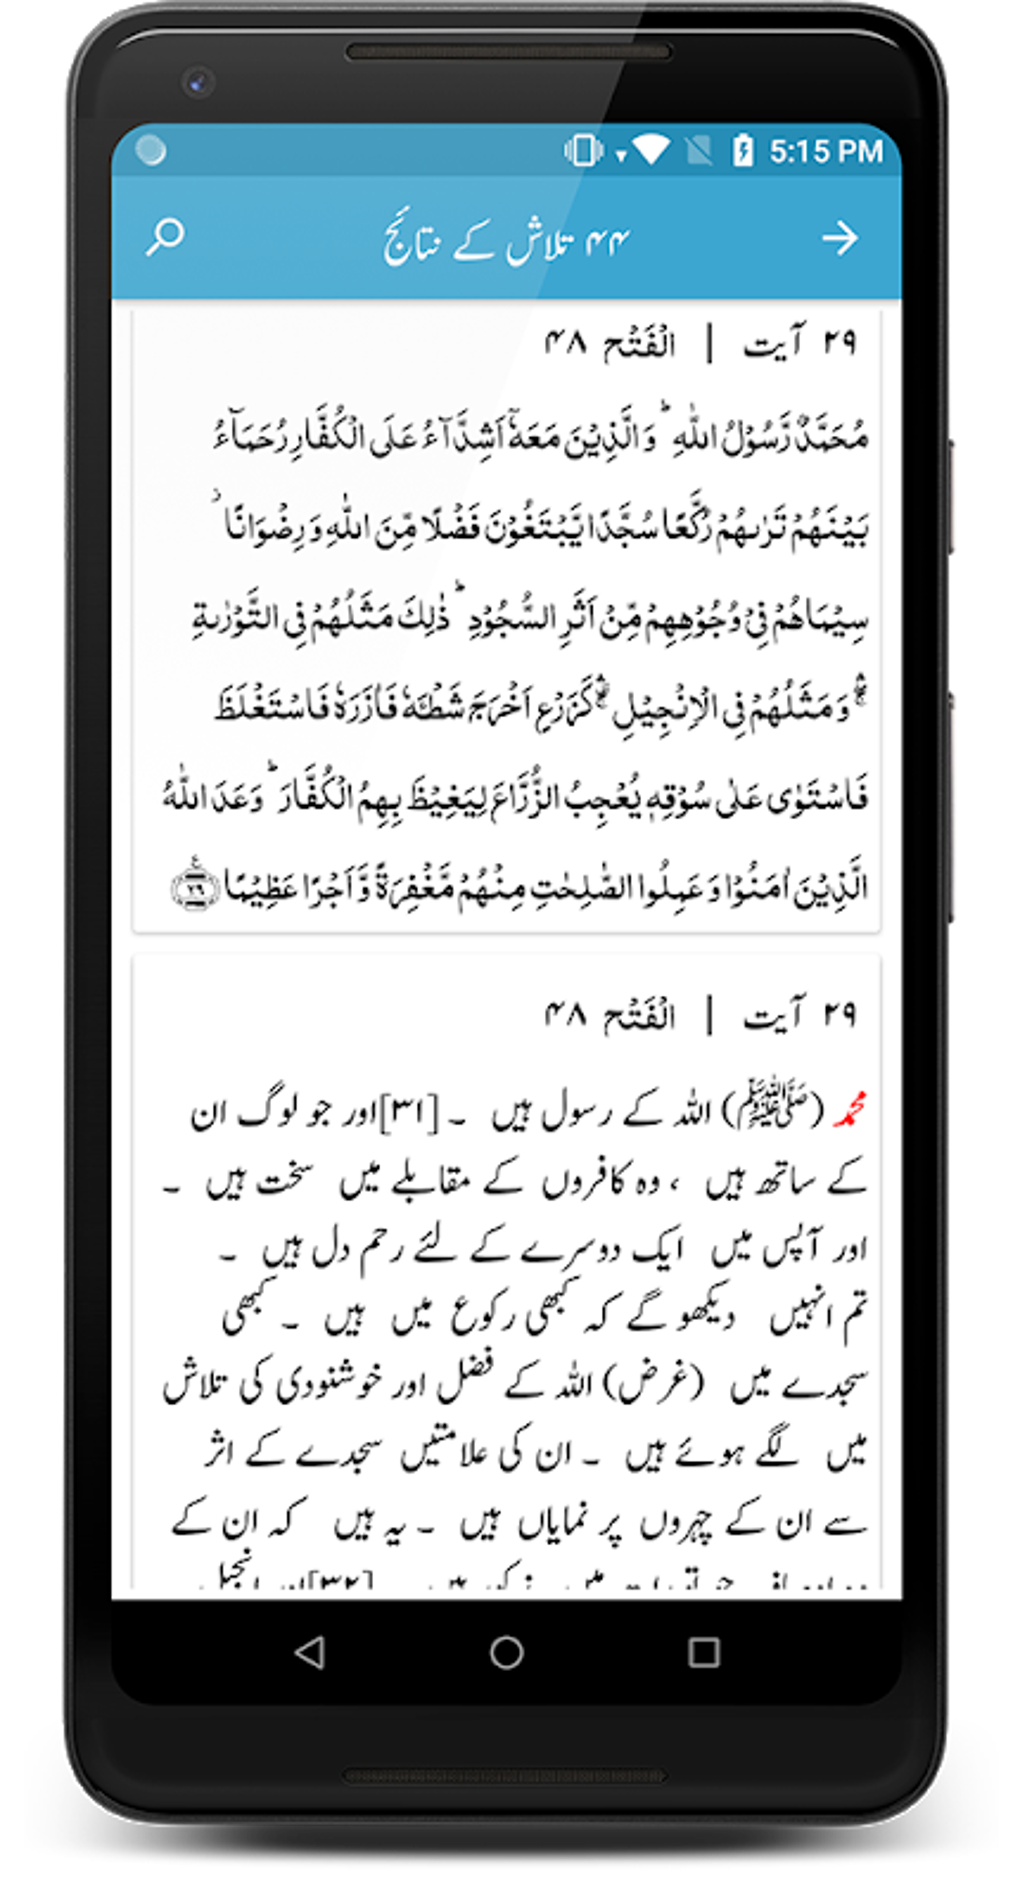 5:15 PM
۴۴ تلاش کے نتائج
۲۹ آیت | الْفَتْح ۴۸
مُحَمَّدٌ رَّسُوْلُ اللّٰهِ ؕ وَالَّذِيْنَ مَعَهٗۤ اَشِدَّآءُ عَلَى الْكُفَّارِ رُحَمَآءُ
بَيْنَهُمْ تَرٰىهُمْ رُكَّعًا سُجَّدًا يَّبْتَغُوْنَ فَضْلًا مِّنَ اللّٰهِ وَرِضْوَانًا ؗ
سِيْمَاهُمْ فِيْ وُجُوْهِهِمْ مِّنْ اَثَرِ السُّجُوْدِ ؕ ذٰلِكَ مَثَلُهُمْ فِي التَّوْرٰىةِ
ۛۖۚ وَمَثَلُهُمْ فِي الْاِنْجِيْلِ ۛۚ كَزَرْعٍ اَخْرَجَ شَطْـَٔهٗ فَاٰزَرَهٗ فَاسْتَغْلَظَ
فَاسْتَوٰى عَلٰى سُوْقِهٖ يُعْجِبُ الزُّرَّاعَ لِيَغِيْظَ بِهِمُ الْكُفَّارَ ؕ وَعَدَ اللّٰهُ
الَّذِيْنَ اٰمَنُوْا وَعَمِلُوا الصّٰلِحٰتِ مِنْهُمْ مَّغْفِرَةً وَّاَجْرًا عَظِيْمًا ۲۹ ع
۲۹ آیت | الْفَتْح ۴۸
محمد (ﷺ) اللہ کے رسول ہیں ۔ [۳۱]اور جو لوگ ان
کے ساتھ ہیں ، وہ کافروں کے مقابلے میں سخت ہیں ۔
اور آپس میں ایک دوسرے کے لئے رحم دل ہیں ۔
تم انہیں دیکھو گے کہ کبھی رکوع میں ہیں ۔ کبھی
سجدے میں (غرض) اللہ کے فضل اور خوشنودی کی تلاش
میں لگے ہوئے ہیں ۔ ان کی علامتیں سجدے کے اثر
سے ان کے چہروں پر نمایاں ہیں ۔ یہ ہیں کہ ان کے